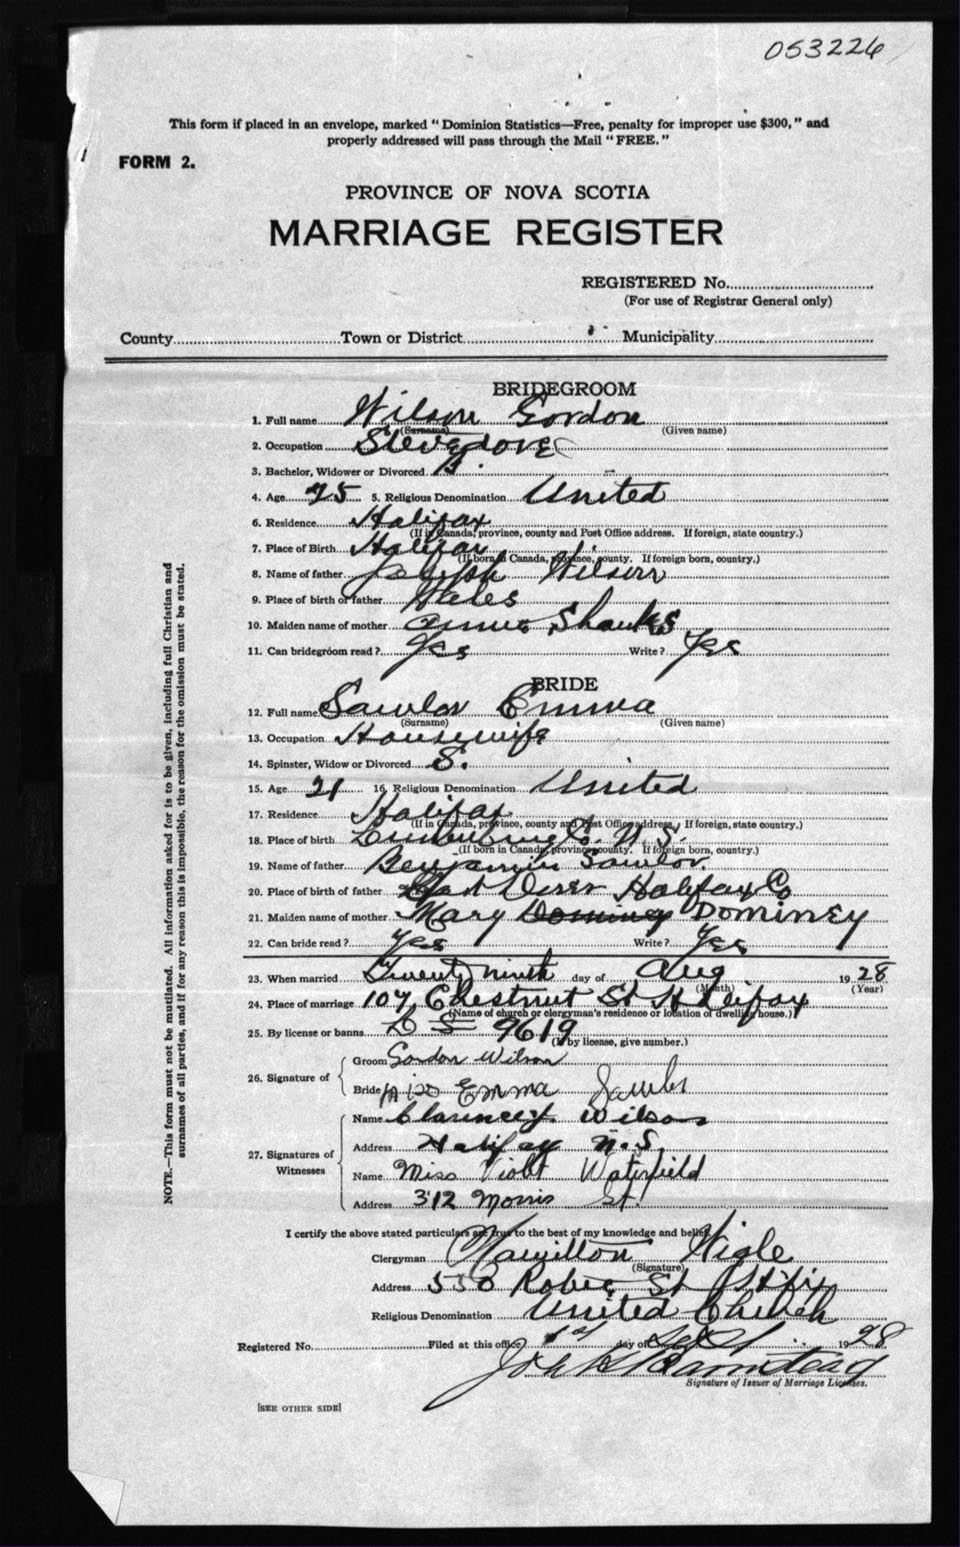 053226
This form if placed in an envelope, marked "Dominion Statistics—Free, penalty for improper use $300," and
properly addressed will pass through the Mail "FREE."
FORM 2.
PROVINCE OF NOVA SCOTIA
MARRIAGE REGISTER
REGISTERED No.
(For use of Registrar General only)
County Town or District Municipality
BRIDEGROOM
1. Full name Wilson Gordon
(Surname) (Given name)
2. Occupation Stevedore
3. Bachelor, Widower or Divorced B.
4. Age 25 5. Religious Denomination United
6. Residence Halifax
(If in Canada, province, county and Post Office address. If foreign, state country.)
7. Place of Birth Halifax
(If born in Canada, province, county. If foreign born, country.)
8. Name of father Joseph Wilson
9. Place of birth of father Wales
10. Maiden name of mother Annie Shanks
11. Can bridegroom read? Yes Write? Yes
BRIDE
12. Full name Sawlor Emma
(Surname) (Given name)
13. Occupation Housewife
14. Spinster, Widow or Divorced S.
15. Age 21 16. Religious Denomination United
17. Residence Halifax
(If in Canada, province, county and Post Office address. If foreign, state country.)
18. Place of birth Lunenburg Co. N.S.
(If born in Canada, province, county. If foreign born, country.)
19. Name of father Benjamin Sawlor
20. Place of birth of father Halifax Co
21. Maiden name of mother Mary Dominey
22. Can bride read? Yes Write? Yes
23. When married Twenty ninth day of Aug 1928
(Month) (Year)
24. Place of marriage 107 Chestnut St Halifax
(Name of church or clergyman's residence or location of dwelling house.)
25. By license or banns 9619
(If by license, give number.)
26. Signature of
Groom Gordon Wilson
Bride Miss Emma Sawler
27. Signatures of Witnesses
Name Clarence Wilson
Address Halifax N.S
Name Miss Violet Waterfield
Address 312 Morris St.
I certify the above stated particulars are true to the best of my knowledge and belief.
Clergyman Hamilton Wigle
(Signature)
Address Robie St Hfx
Religious Denomination United Church
Registered No. Filed at this office 1st day of Sept 1928
Signature of Issuer of Marriage Licenses.
[SEE OTHER SIDE]
NOTE.—This form must not be mutilated. All information asked for is to be given, including full Christian and
surnames of all parties, and if for any reason this is impossible, the reason for the omission must be stated.